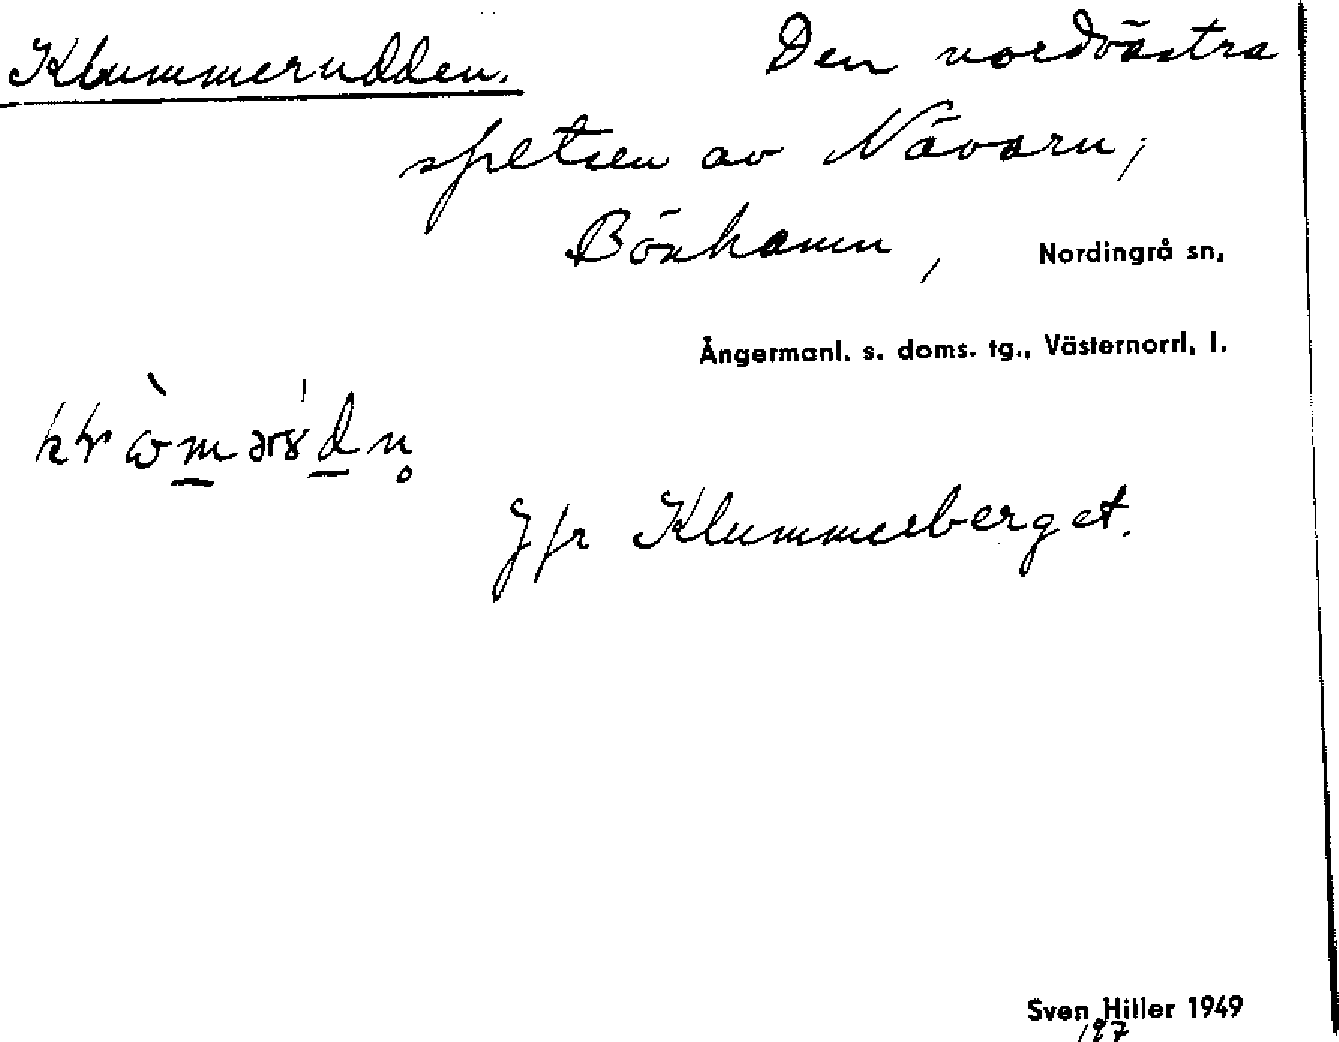 Klummerudden. Den nordvästra
spetsen av Nävarn,
Bönhamn, Nordingrå sn,
Ångermanl. s. doms. tg., Västernorrl. l.
Jfr Klummerberget.
Sven Hiller 1949
197